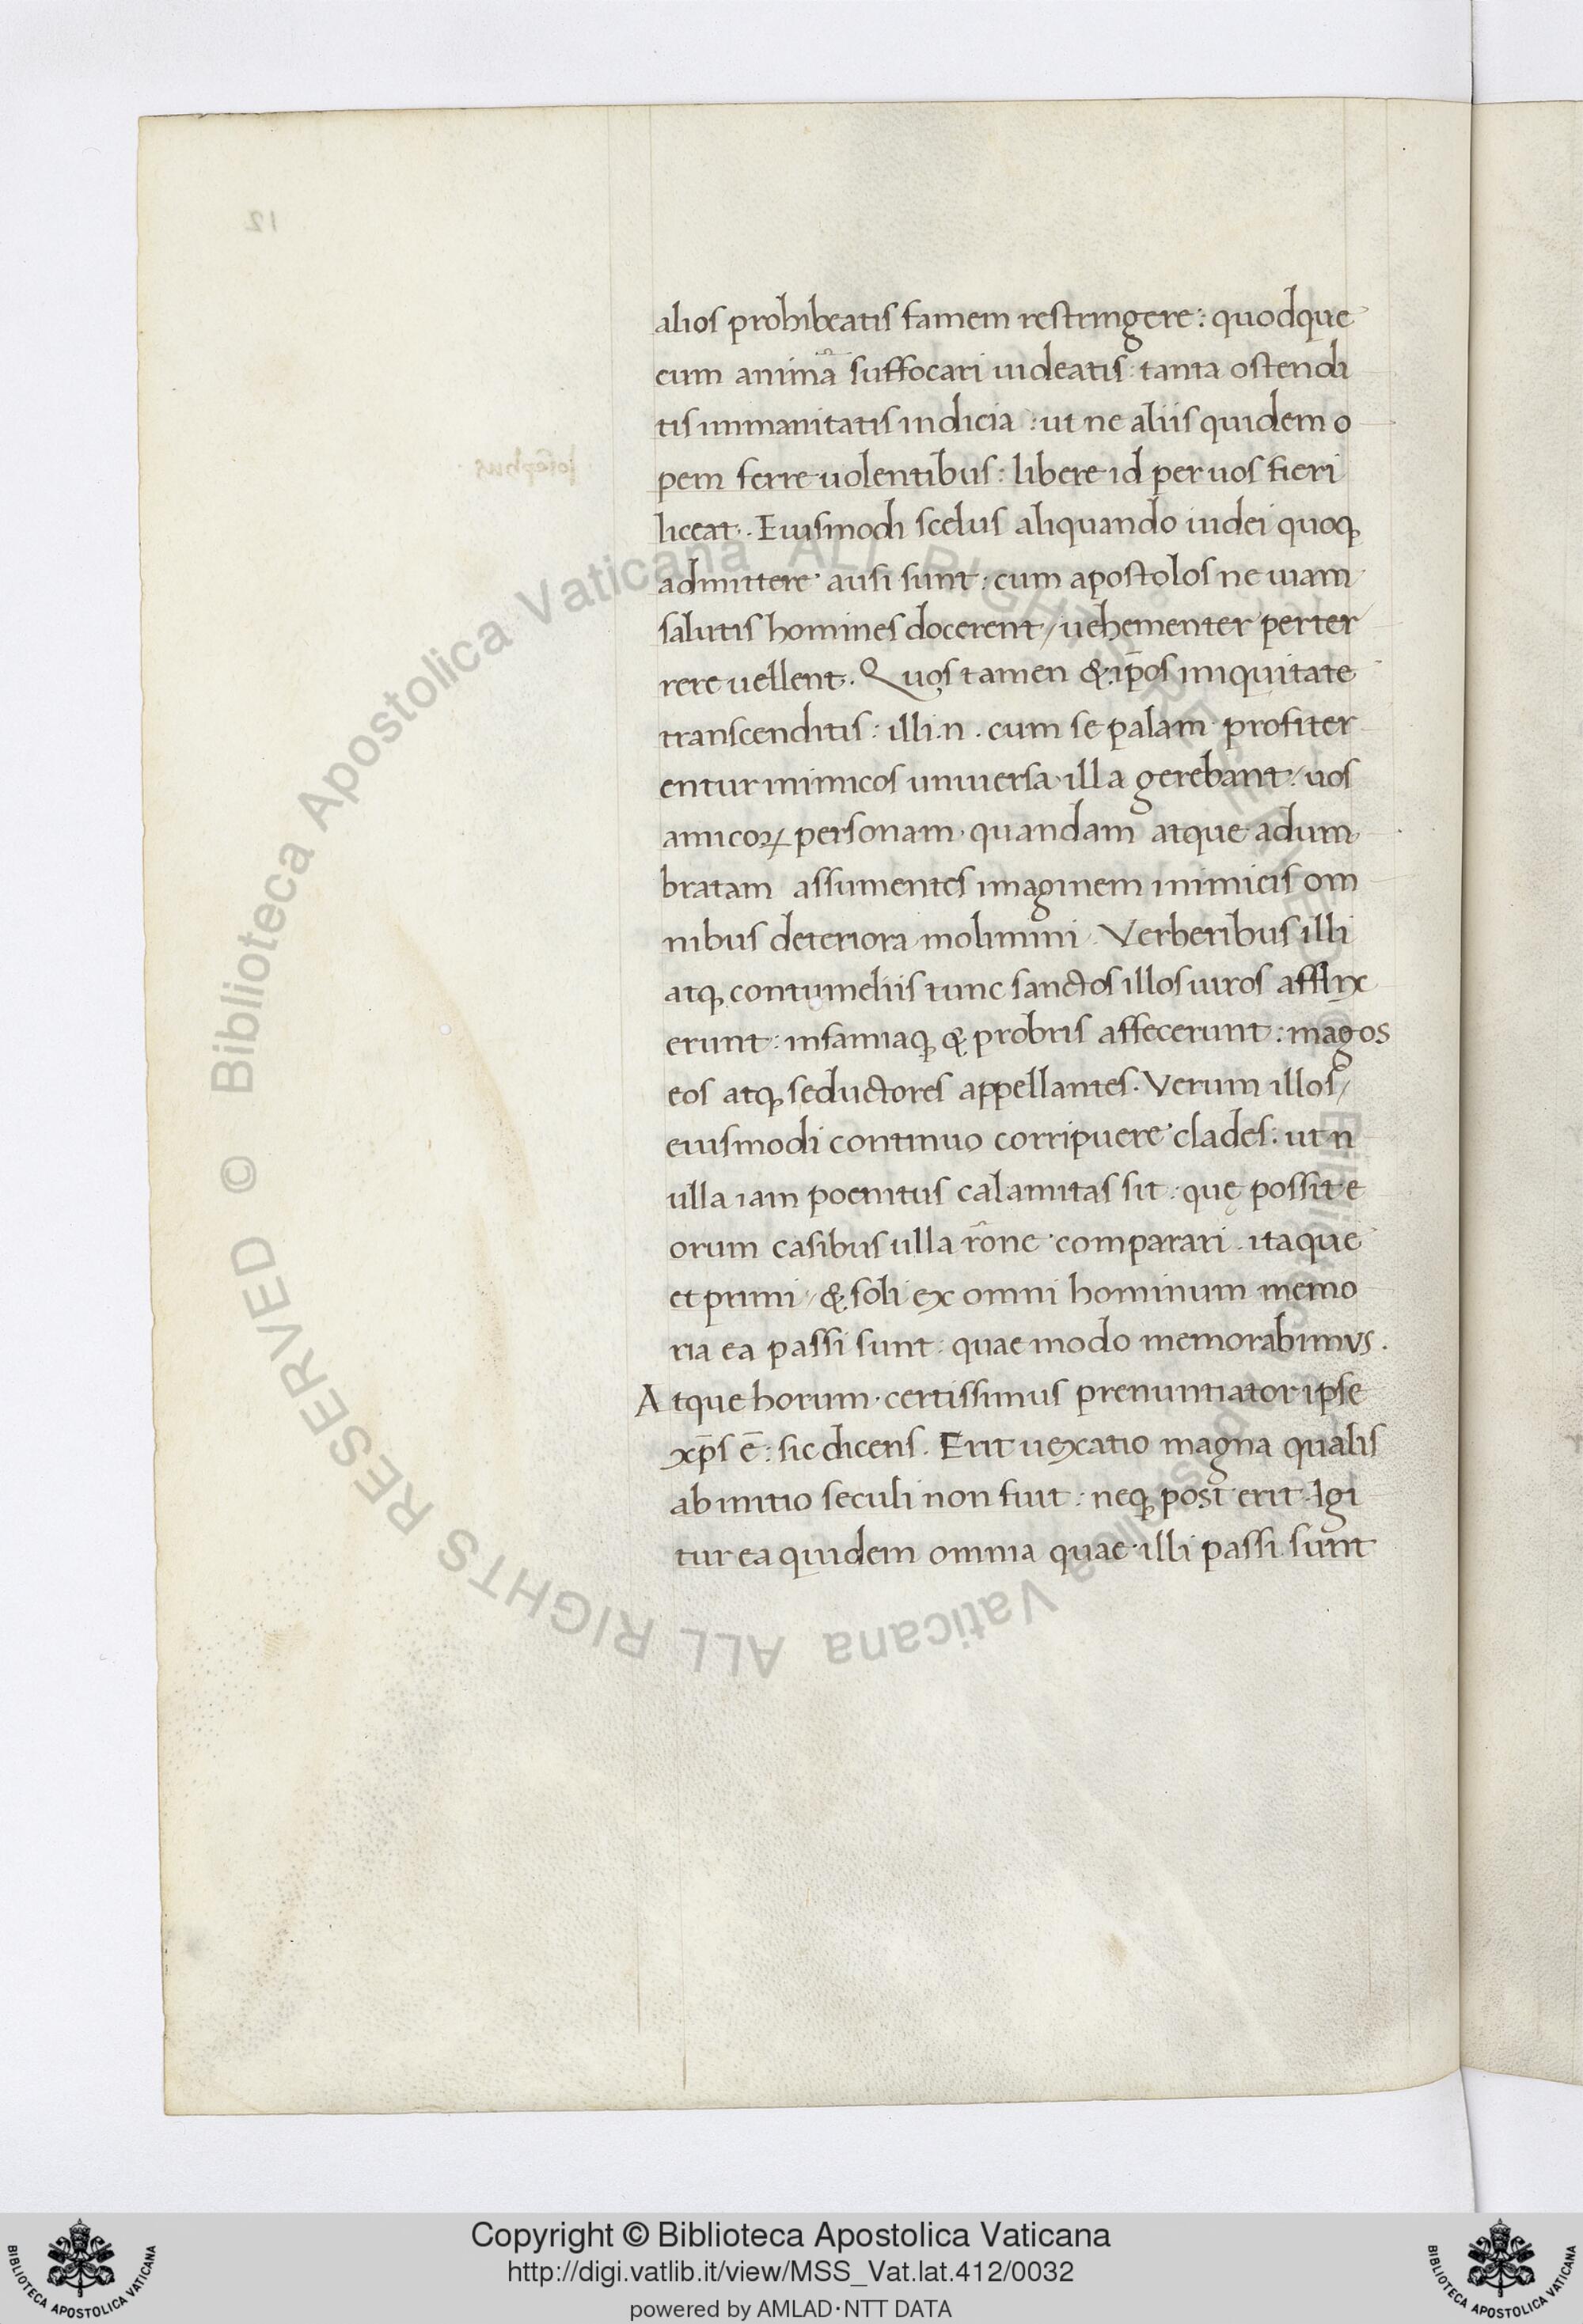 alios prohibeatis famem restringere: quodque
cum animã suffocari uideatis: tanta ostendi
tis immanitatis indicia: ut ne aliis quidem o
pem ferre uolentibus: libere id per uos fieri
liceat. Eiusmodi scelus aliquando iudei quoqꝫ
admittere ausi sunt: cum apostolos ne uiam
salutis homines docerent/ uehementer perter
rere uellent. Quos tamen & ip̄os iniquitate
transcenditis: illi .n. cum se palam profiter
entur inimicos uniuersa illa gerebant: uos
amicoꝝ personam quandam atque adum
bratam assumentes imaginem inimicis om
nibus deteriora molimini. Verberibus illi
atqꝫ contumeliis tunc sanctos illos uiros afflix
erunt: infamiaqꝫ & probris affecerunt: magos
eos atqꝫ seductores appellantes. Verum illos/
eiusmodi continuo corripuere clades: ut n
ulla iam poenitus calamitas sit: quę possit e
orum casibus ulla rõne comparari. itaque
et primi/ & soli ex omni hominum memo
ria ea passi sunt: quae modo memorabimus.
Atque horum certissimus prenuntiator ipse
xp̄s ē: sic dicens. Erit uexatio magna qualis
ab initio seculi non fuit: neqꝫ post erit. Igi
tur ea quidem omnia quae illi passi sunt
12
Iosephus
© Biblioteca Apostolica Vaticana ALL RIGHTS RESERVED © Biblioteca Apostolica Vaticana ALL RIGHTS RESERVED
Copyright © Biblioteca Apostolica Vaticana
http://digi.vatlib.it/view/MSS_Vat.lat.412/0032
powered by AMLAD·NTT DATA
BIBLIOTECA APOSTOLICA VATICANA
BIBLIOTECA APOSTOLICA VATICANA